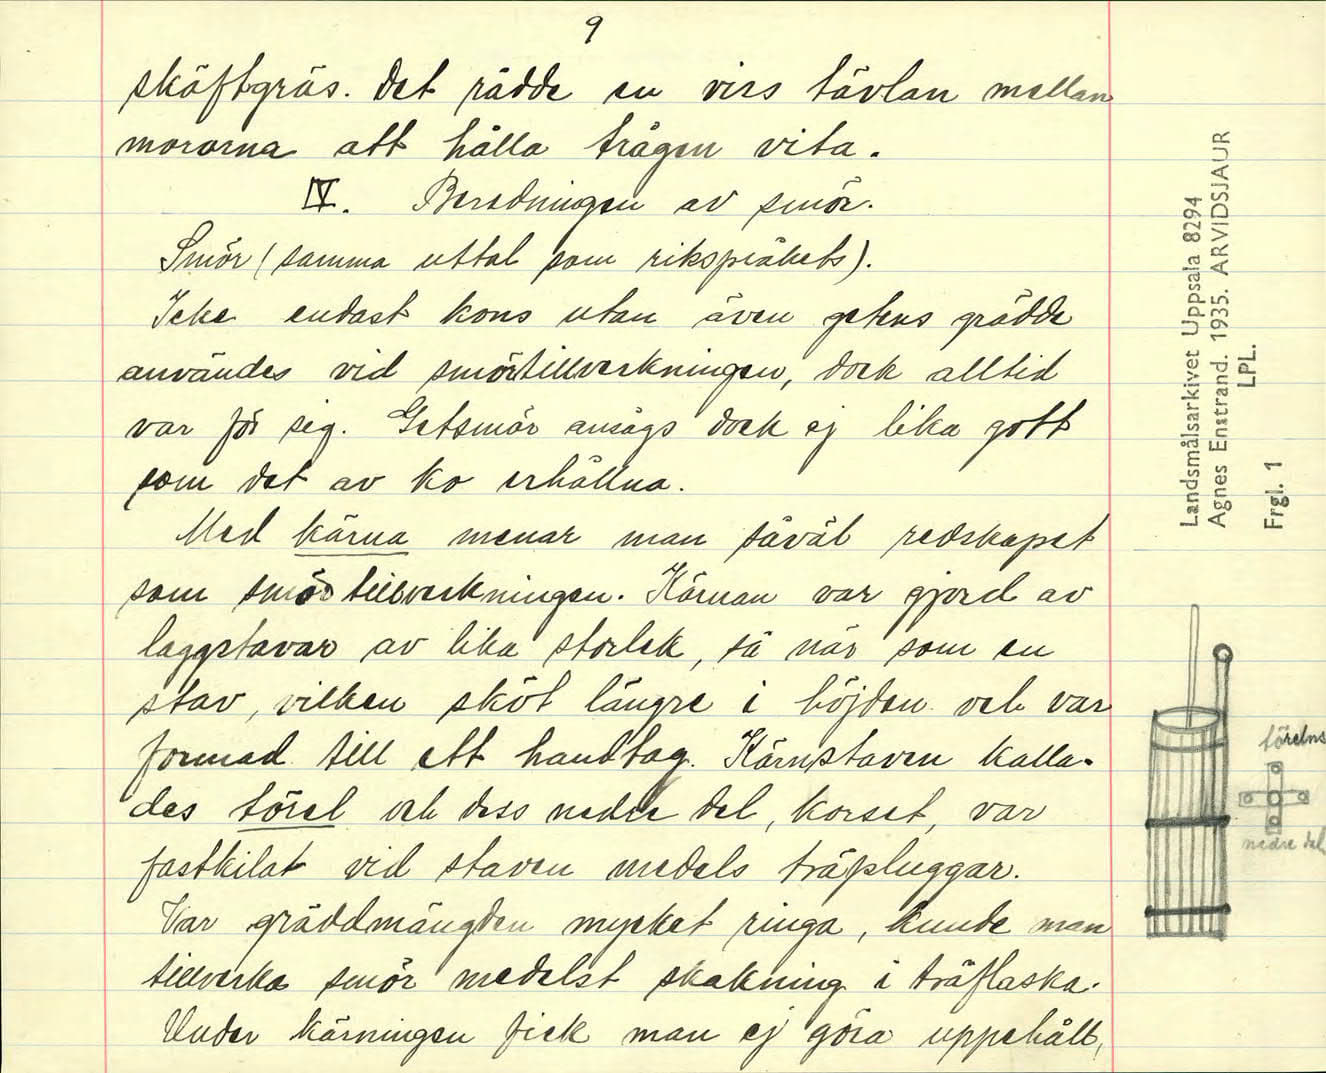 9
skäftgräs. Det rådde en viss tävlan mellan
mororna att hålla trågen vita.
IV. Beredningen av smör.
Smör (samma uttal som riksspråkets).
Icke endast kons utan även getens grädde
användes vid smörtillverkningen, dock alltid
var för sig. Getsmör ansågs dock ej lika gott
som det av ko erhållna.
Med kärna menar man såväl redskapet
som smörtillverkningen. Kärnan var gjord av
laggstavar av lika storlek, så när som en
stav, vilken sköt längre i höjden och var
formad till ett handtag. Kärnstaven kalla-
des törel och dess nedre del, korset, var
fastkilat vid staven medels träpluggar.
Var gräddmängden mycket ringa, kunde man
tillverka smör medelst skakning i träflaska.
Under kärningen fick man ej göra uppehåll,
Landsmålsarkivet Uppsala 8294
Agnes Enstrand. 1935. ARVIDSJAUR
LPL.
Frgl. 1
törelns
nedre del